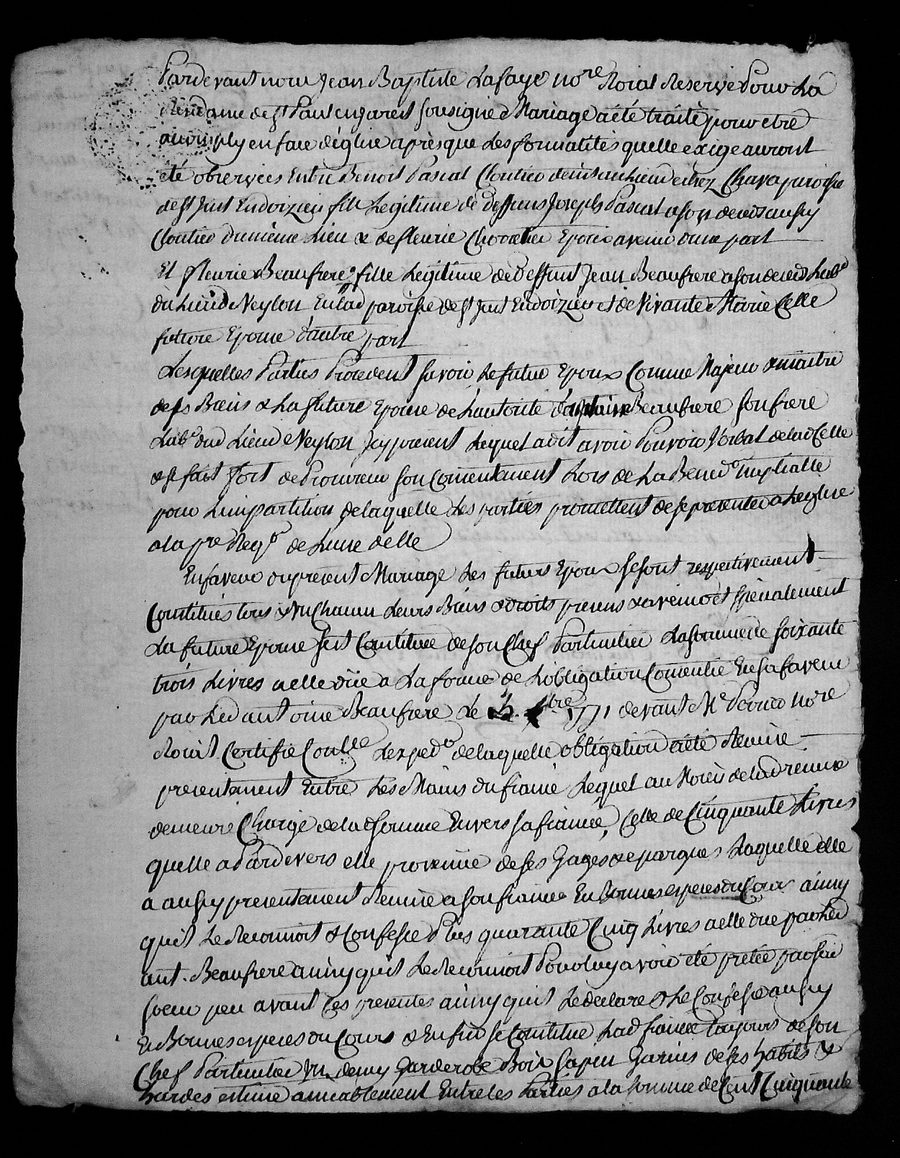 Pardevant nous Jean Baptiste Lafaye nore Roial Reservé Pour La
Rendame de st Paul en Jarest soussigné Mariage a été traitté pour etre
accomply en face d'église après que Les formalités quelle exige auront
été observées Entre Benoit Pascal Cloutier dem.t au Lieu de chez Chava paroisse
de st Just Endoizieu fils Legitime de deffunt Joseph Pascal a son deced aussy
Cloutier du meme Lieu & de fleurie Chovetier Epoux avenir d'une part
Et fleurie Beaufrere fille Légitime de Deffunt Jean Beaufrere a son deced Labr
du Lieu de Neylon En lad paroisse de st Just Endoizieu et de Vivante Marie Celle
future Epouse d'autre part
Lesquelles Parties Procedent savoir Le futur Epoux Comme Majeur & maitre
de ses Biens & La future Epouse de L'autorité d'antoine Beaufrere son frere
Labr dud Lieu de Neylon Icy present Lequel a dit avoir Pouvoir Verbal de lad Celle
& se fait fort de Procurer son Consentement Lors de La Bened.on nuptialle
pour L'impartition de laquelle Les parties promettent de se presenter a Leglise
a la pre Reqon de L'une delle
En faveur du present Mariage Les futurs Epoux se sont respectivement
Constitués tous & un Chacun Leurs Biens & droits presens & avenir et spécialement
La future Epouse s'est Constituée de son Chef Particulier La somme de soixante
trois Livres a elle düe a La forme de L'obligation Consentie En sa faveur
par Led antoine Beaufrere Le 3 1771 devant Me Perrier nore
Roial Certifié Conlle L'exped.on de laquelle obligation a été Remise
presentement Entre Les Mains du fiancé Lequel au Moien de lad Remise
demeure Chargé de lad somme Envers sa fiancée, Celle de Cinquante Livres
quelle a Pardevers elle provenüe de ses Gages & epargnes Laquelle elle
a aussy presentement Remise a son fiancé En Bonnes especes du Cours ainsy
quil Le Reconnoit & Confesse Plus quarante Cinq Livres a elle due par Led
ant. Beaufrere ainsy quil Le Reconnoit Pour luy avoir été prettée par sa
soeur peu avant Ces presentes ainsy quil Le declare & Le Confesse aussy
En Bonnes especes du Cours & Enfin se Constitue Lad fiancée toujours de son
Chef Particulier Un demy Garderobe Bois sapin Garnis de ses habits &
hardes estimé amiablement Entre les Parties a la somme de Cent Cinquante